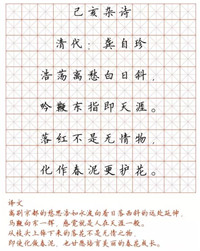 己亥杂诗
清代：龚自珍
浩荡离愁白日斜，
吟鞭东指即天涯。
落红不是无情物，
化作春泥更护花。
译文
离别京都的愁思浩如水波向着日落西斜的远处延伸，
马鞭向东一挥，感觉就是人在天涯一般。
从枝头上掉下来的落花不是无情之物，
即使化做春泥，也甘愿培育美丽的春花成长。